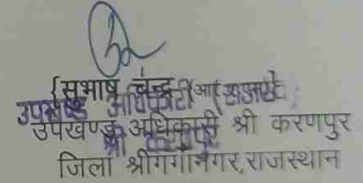 {सुभाष चंद्र
उपखण्ड अधिकारी
उपखण्ड अधिकारी श्री करणपुर
जिला श्रीगंगानगर,राजस्थान